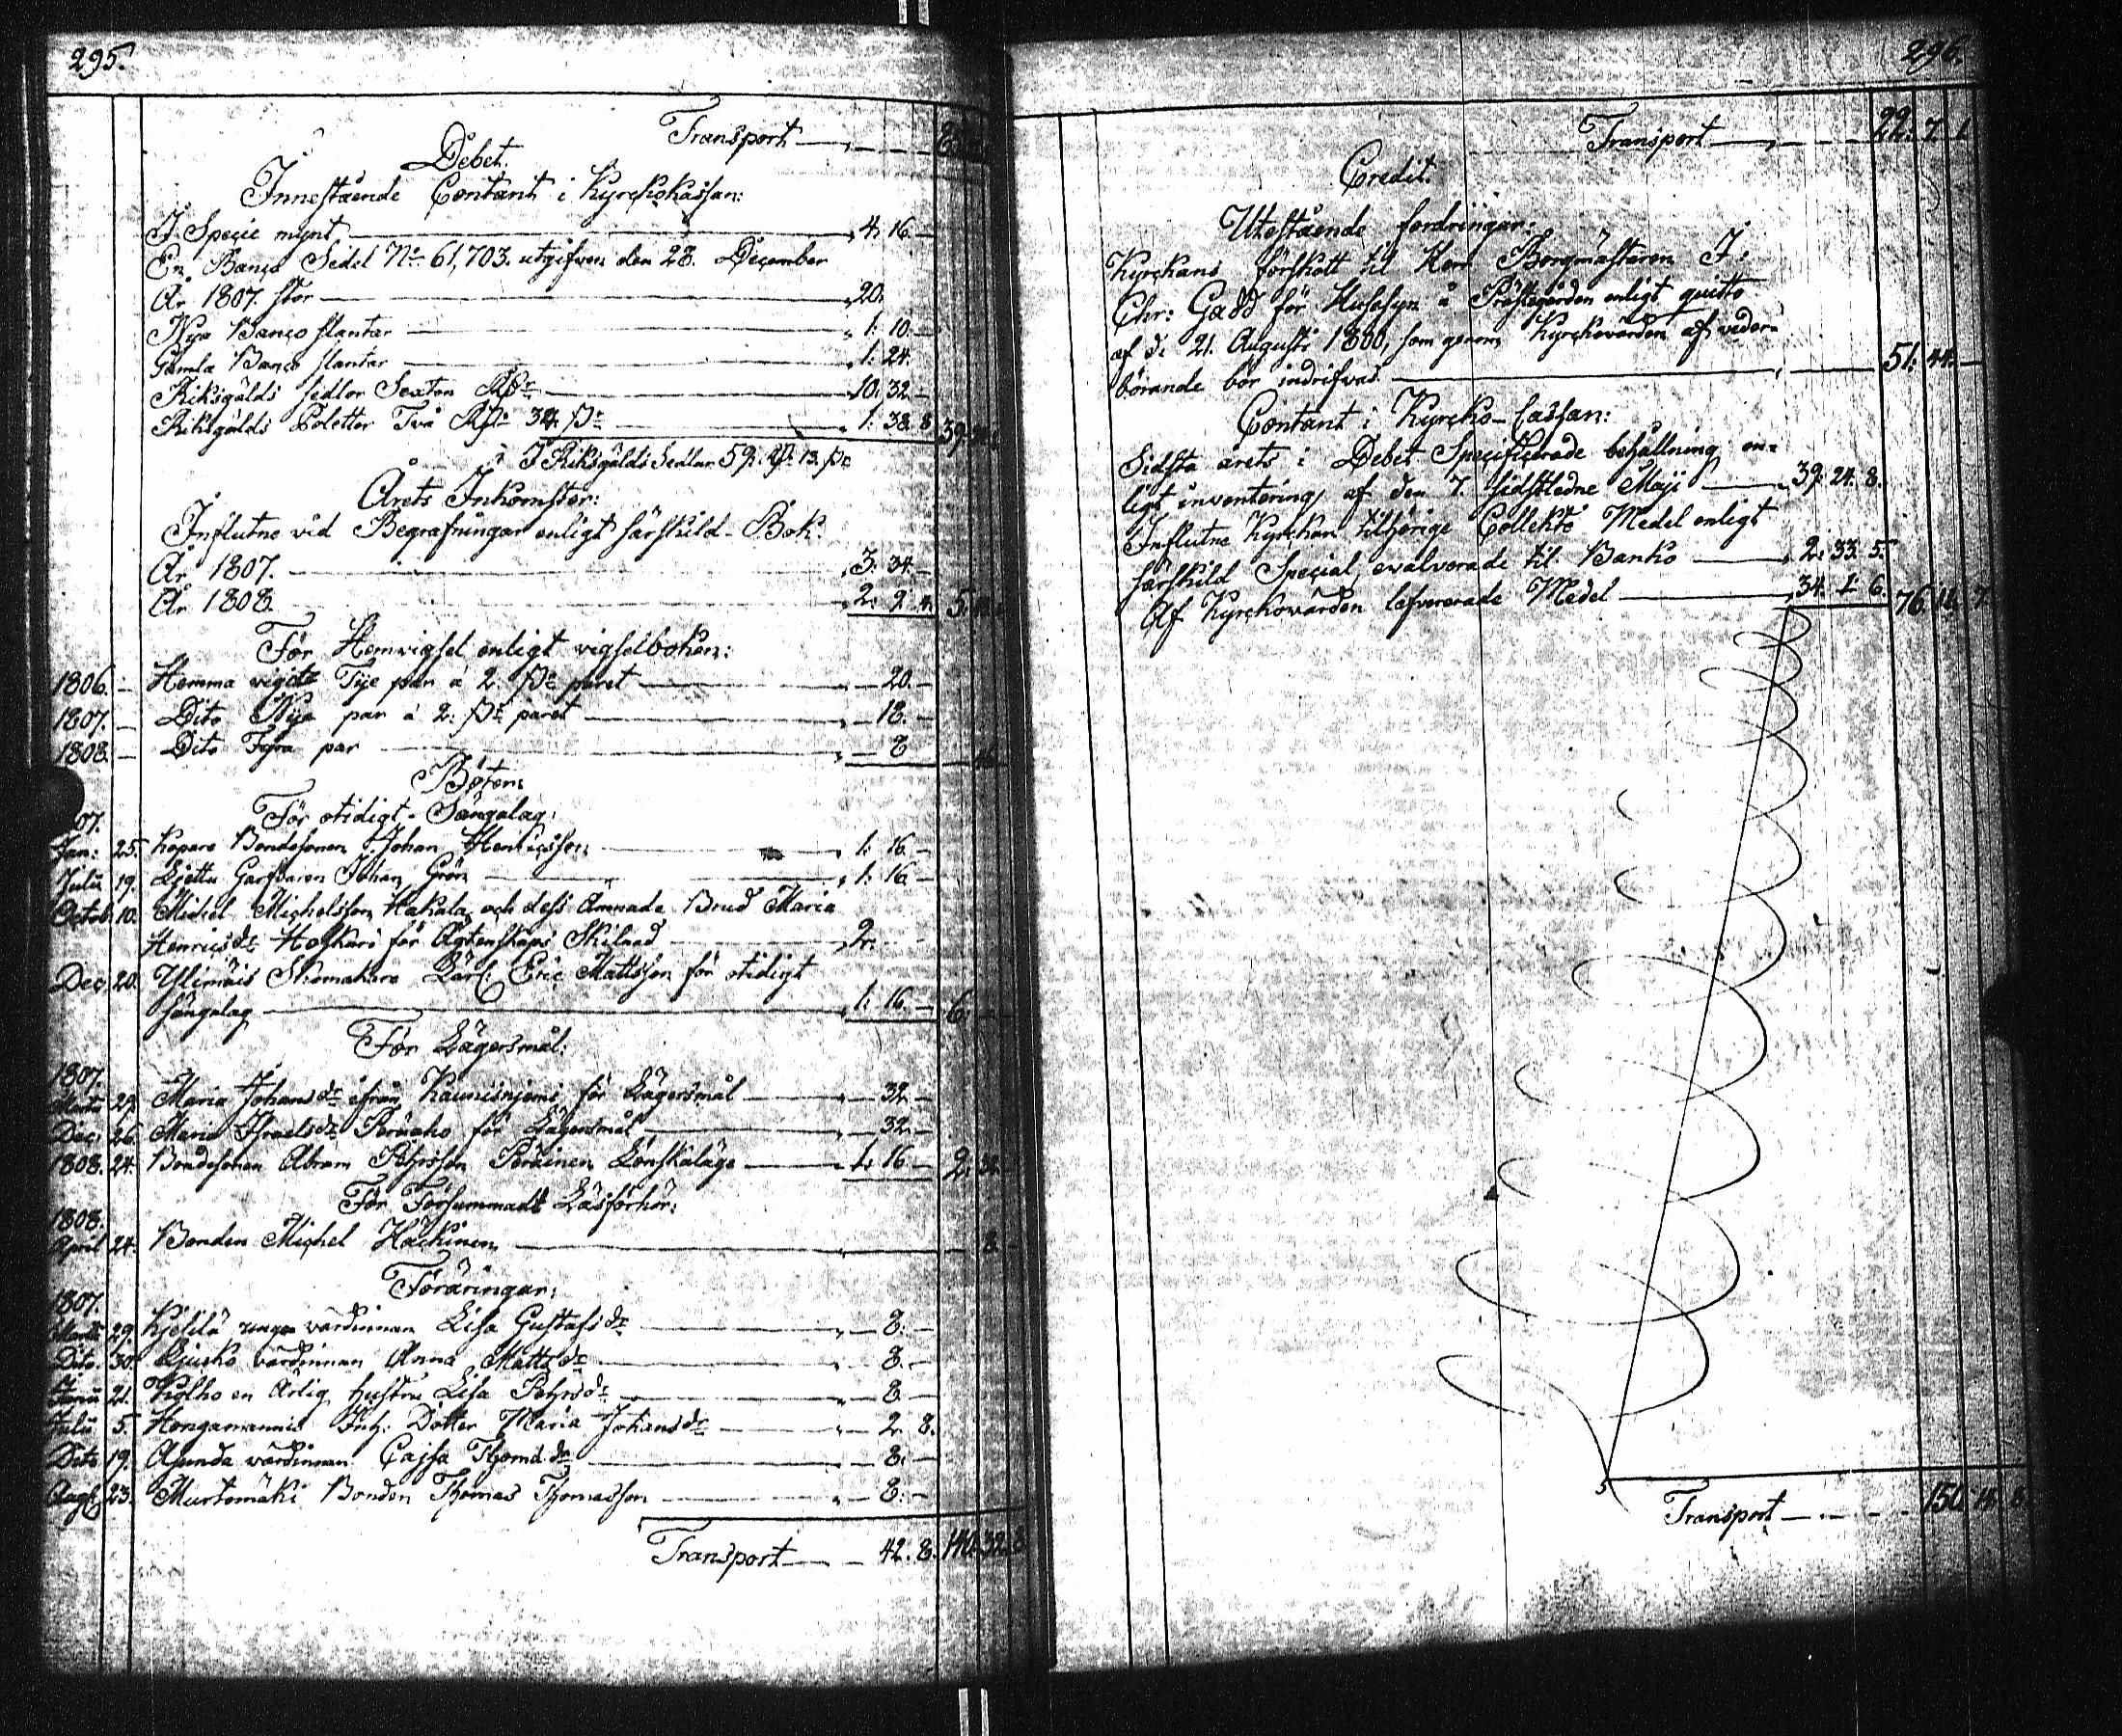 295.
Transport
Debet.
Innestående Contant i Kyrckokassan:
I Specie mynt 4. 16.
En Banco Sedel No 61,703. utgifven den 28. December
År 1807. stor 20.
Nya Banco slantar 1: 10.
Gamla Banco slantar 1: 24.
Riksgälds sedlar Sexton Rdr 10: 32
Riksgälds Poletter Två Rdr 34 sk 1: 38. 8 39.
I Riksgälds Sedlar 59. Rdr 13. sk
Årets Inkomster:
Influtne vid Begrafningar enligt särskild Bok.
År 1807. 3: 34.
År 1808. 2: 9. 4. 5.
För Hemvigsel enligt vigselboken:
1806. Hemma vigde Tije par á 2. sk paret 20.
1807. Dito Nije par á 2: sk paret 18.
1808. Dito Fyra par 8
Böter:
För otidigt Sängalag:
07.
Jan: 25. Bondesonen Johan Henricsson 1: 16.
Julii 19. Garfvaren Johan Grön 1: 16.
Octob. 10. Michel Michelsson Kakala och dess Ämnade Brud Maria
Henricsdr för Ägtenskaps Skilnad 2.
Dec. 20. Skomakare Lärl: Eric Mattsson för otidigt
sängalag 1: 16. 6.
För Lägersmål:
1807.
Martii 29. Maria Johansdr ifrån Kaunisnjemi för Lägersmål 32.
Dec: 26. Maria Israelsdr för Lägersmål 32.
1808. 24. Bondesonen Abram Pehrsson Lönskaläge 1. 16. 2.
För Försummadt Läsförhör:
1808.
April 24. Bonden Michel Hackinen 8
Föräringar:
1807.
Martii 29. unga värdinnan Lisa Gustafsdr 8.
Dito. 30. värdinnan Anna Mattsdr 8.
Junii 21. Kolho en Ärlig hustru Lisa Pehrsdr 8.
Julii 5. Inh: Dotter Maria Johansdr 2. 8.
Dito 19. Asunda värdinnan Cajsa Thomsdr 8.
Aug. 23. Murtomäki Bonden Thomas Thomasson 8.
Transport 42. 8. 32
296.
Transport 22. 7. 1
Credit.
Utestående fordringar:
Kyrckans förskott til Herr Borgmästaren J:
Chr: Gadd för Husesyn å Prästegården enligt quitto
af d: 21. Augusti 1800, som genom Kyrckovärden af veder-
börande bör indrifvas 51: 44.
Contant i Kyrcko-Cassan:
Sidsta årets i Debet Specificerade behållning en-
ligt inventering af den 7. sidstledne Maji 39: 24: 8.
Influtne Kyrckan tilhörige Collekte Medel enligt
särskild Special, evalverade til Banko 2: 33: 5.
Af Kyrckovärden lefvererade Medel 34. 1. 6. 76.
Transport 150.